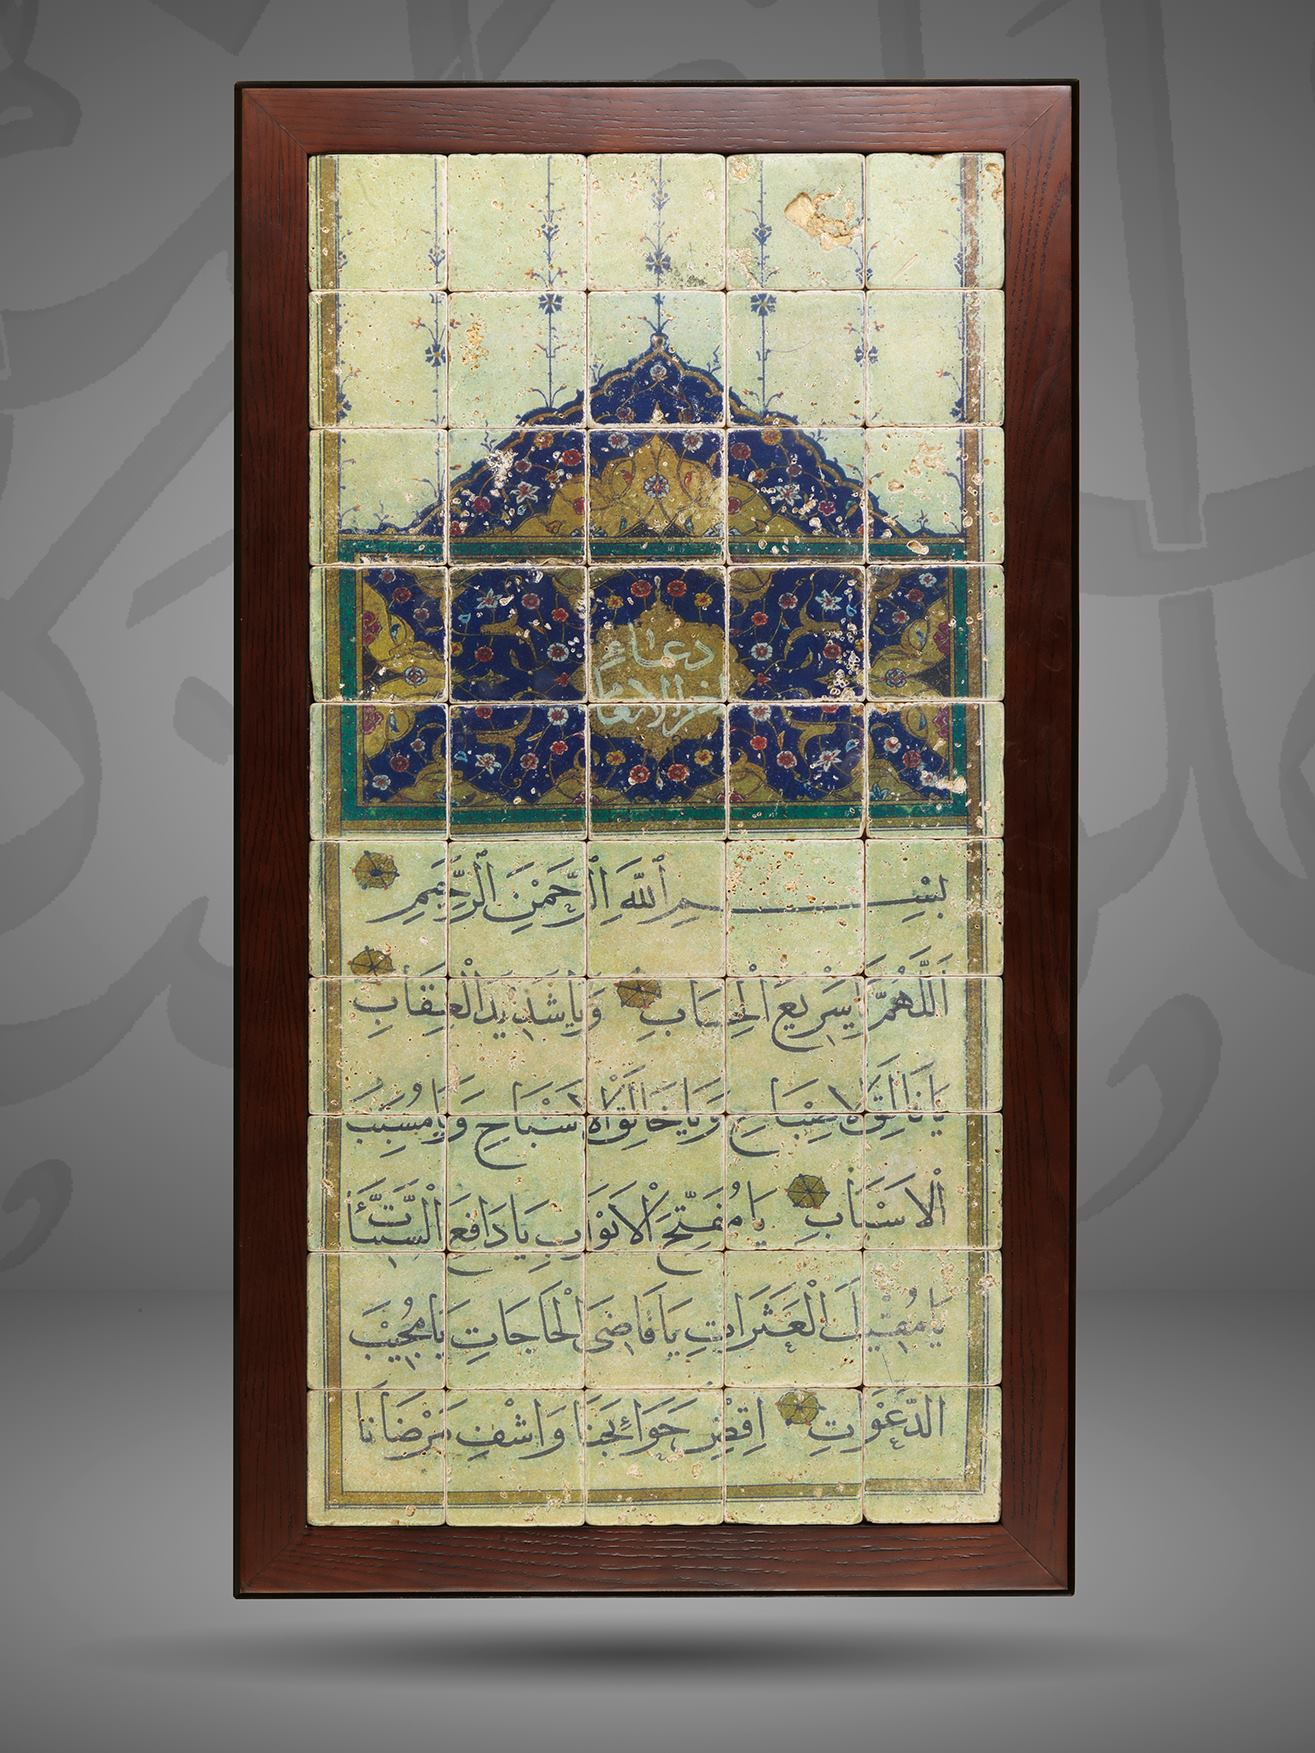 دعاء
اخر الانعام
بسم الله الرحمن الرحيم
اللهم يا سريع الحساب ويا شديد العقاب
يا فالق الاصباح ويا خالق الاشباح ويا مسبب
الاسباب يا مفتح الابواب يا دافع السيئات
يا مقيل العثرات يا قاضي الحاجات يا مجيب
الدعوات اقض حوائجنا واشف مرضانا